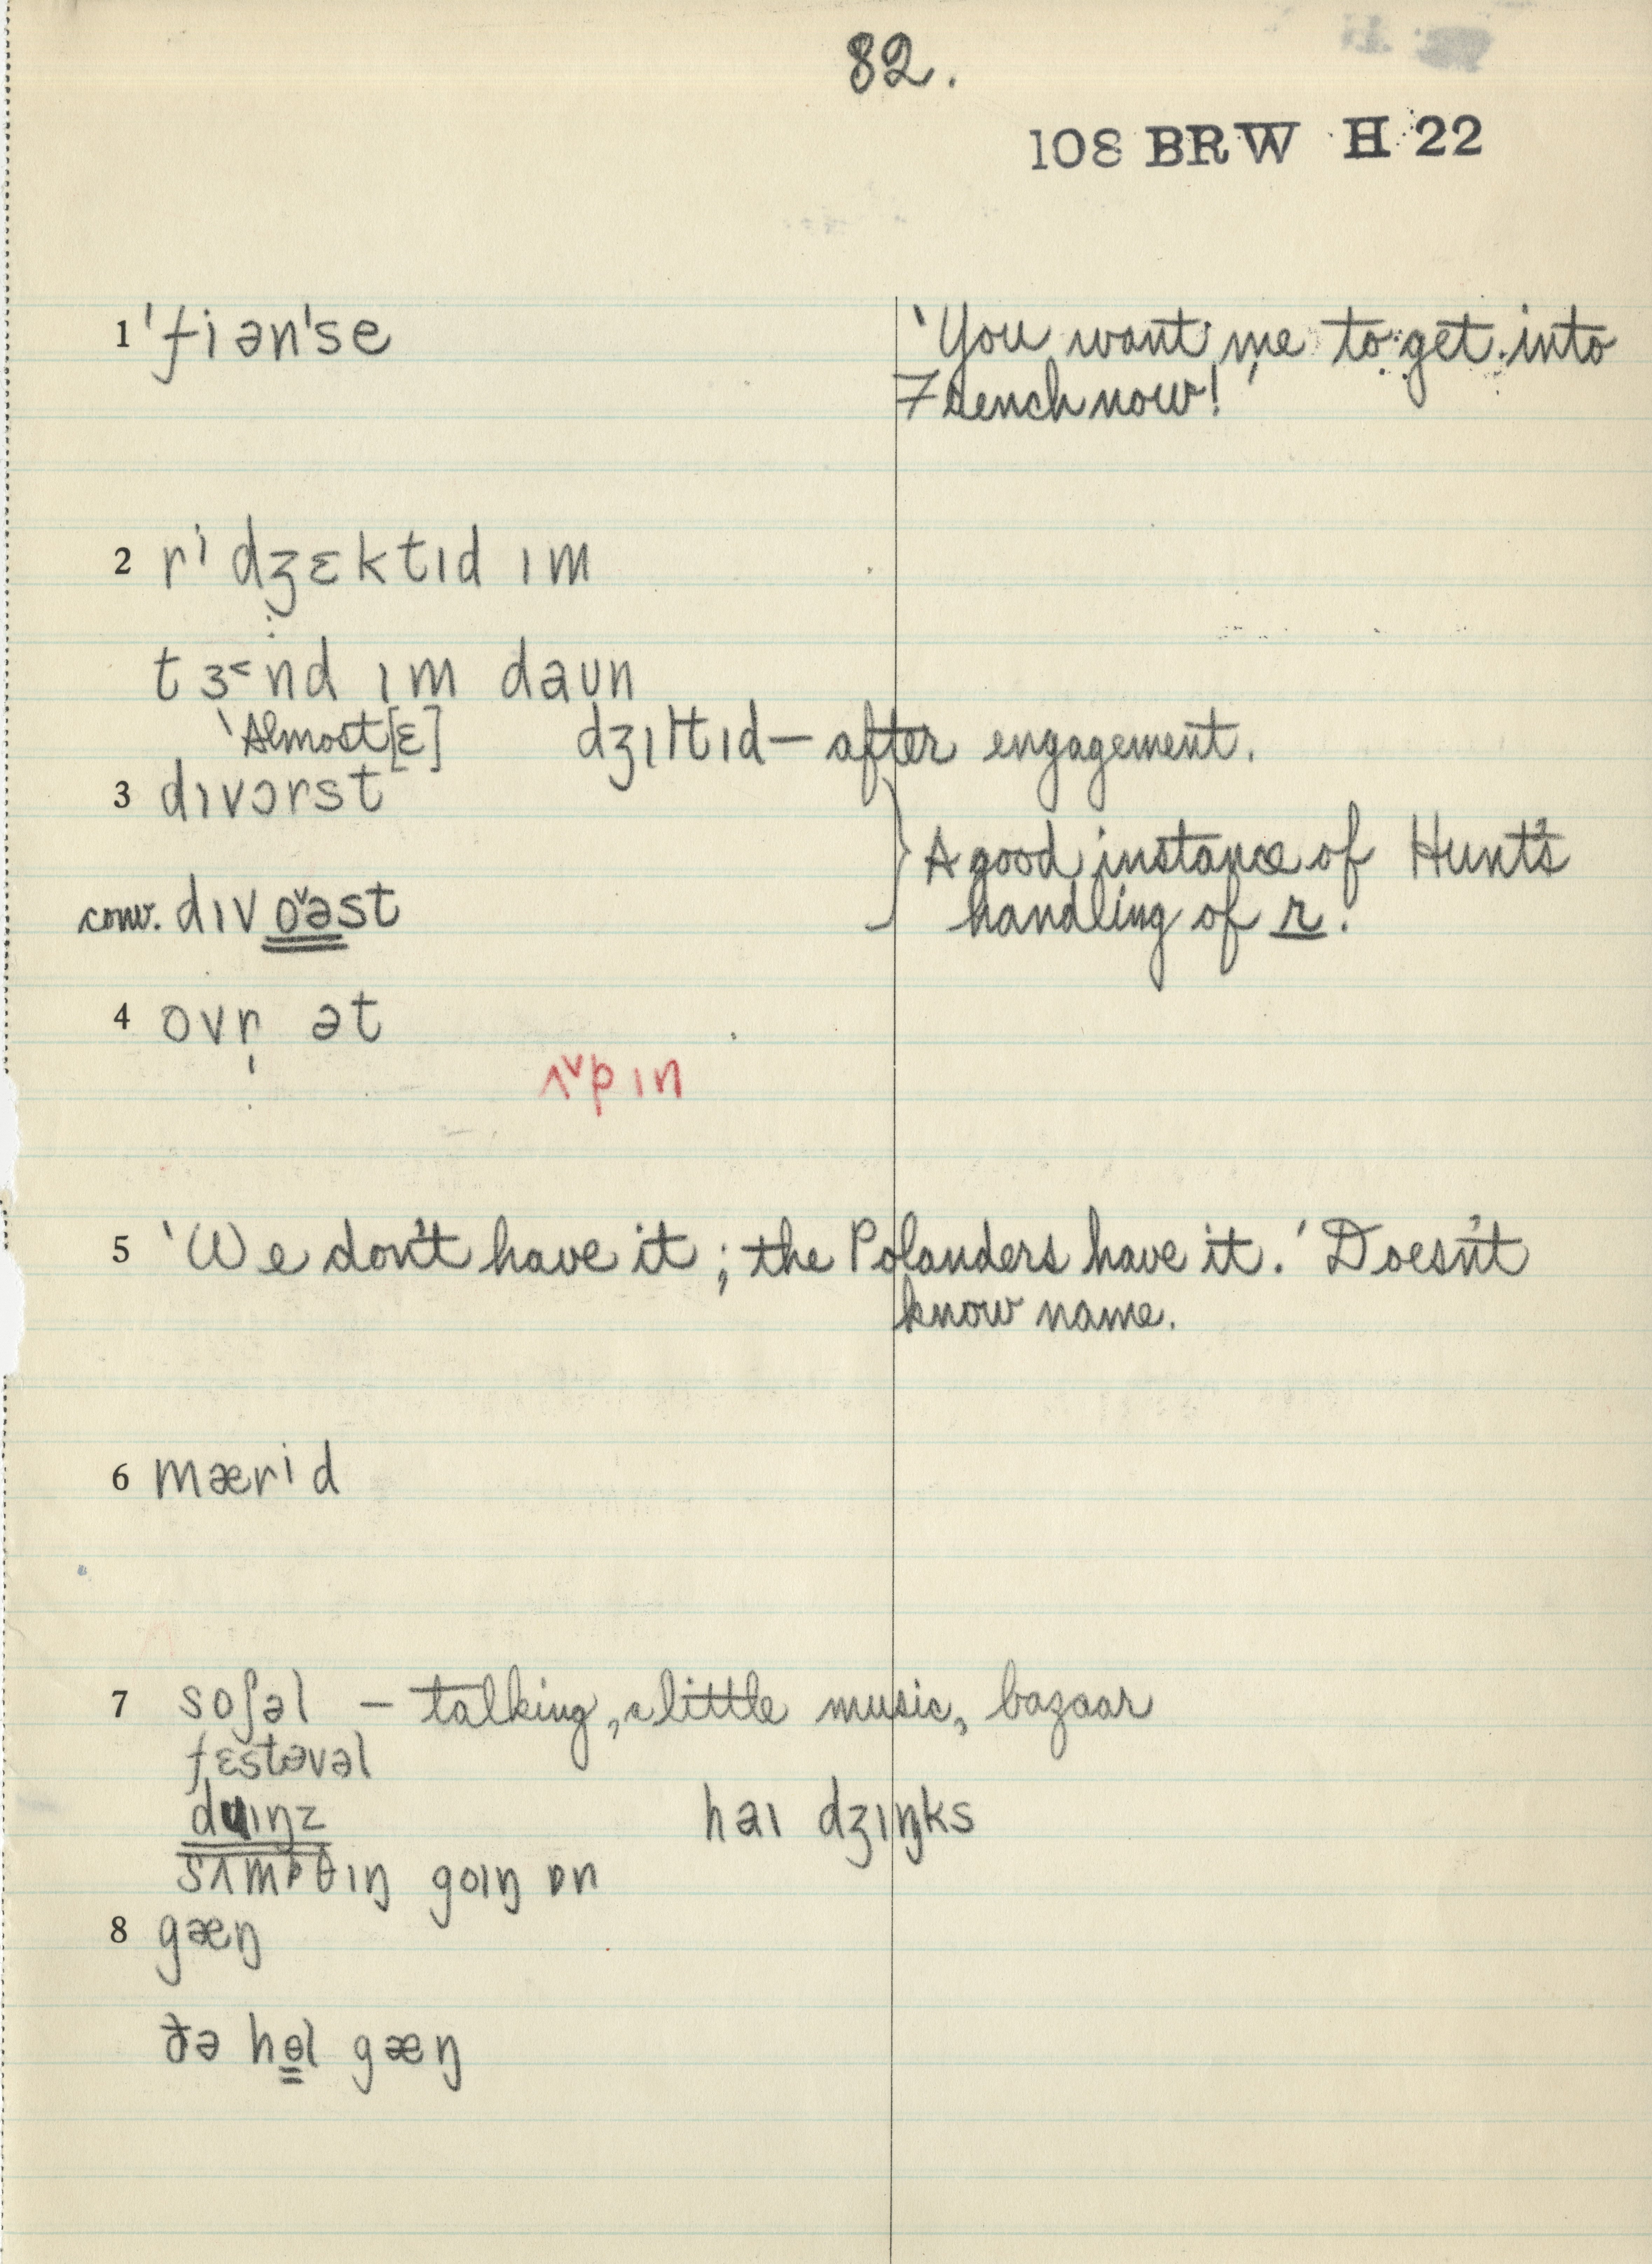 82.
108 BRW H 22
1 ˈfiənˈse ‘You want me to get into
French now!’
2 riˈdʒɛktɪd ɪm
tɜ˂nd ɪm daʊn
‘Almost [ɛ] dʒɪltɪd — after engagement.
3 dɪvɔrst
} A good instance of Hunt's
conv. dɪvo˅əst handling of r.
4 ovr̩ ət
ʌ˅pɪn
5 ‘We don't have it; the Polanders have it.’ Doesn't
know name.
6 mærid
7 soʃəl — talking, a little music, bazaar
fɛstəvəl
duɪŋz haɪ dʒɪŋks
sʌmpθɪŋ goɪŋ ɒn
8 gæŋ
ðə hɵl gæŋ